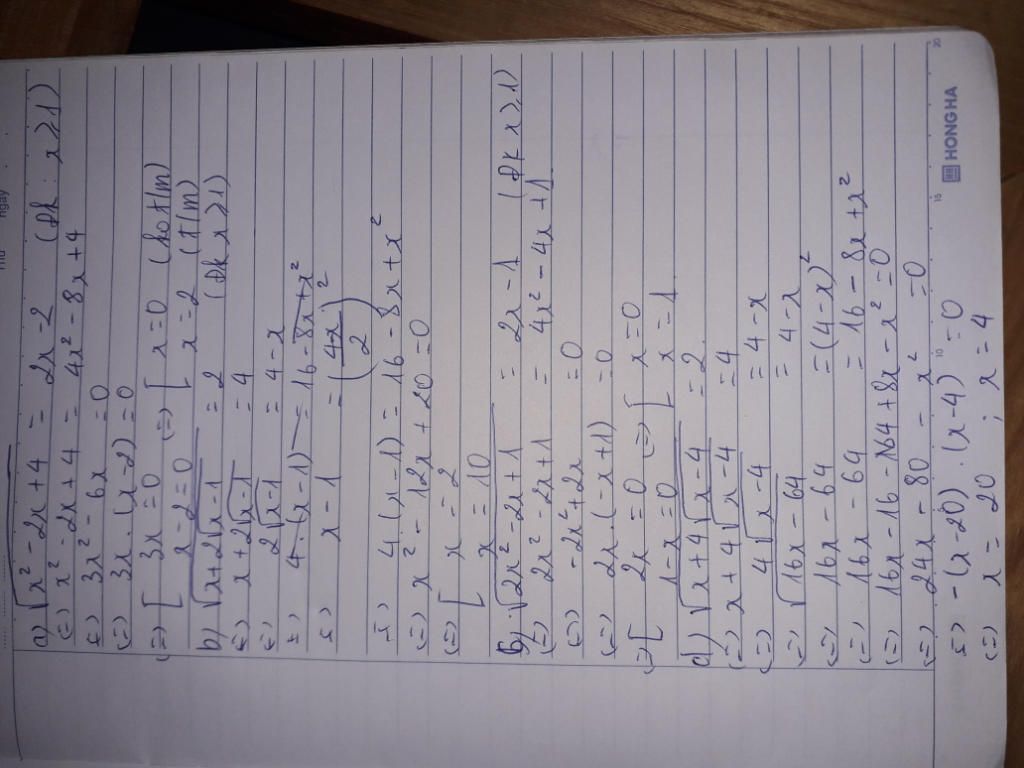 ngày
a) √x² - 2x + 4 = 2x - 2 (đk : x ≥ 1)
(=) x² - 2x + 4 = 4x² - 8x + 4
(=) 3x² - 6x = 0
(=) 3x . (x - 2) = 0
(=) [ 3x = 0 (=) [ x = 0 (ko t/m)
x - 2 = 0 x = 2 (t/m)
b) √x + 2√x - 1 = 2 (đk x ≥ 1)
(=) x + 2√x - 1 = 4
(=) 2√x - 1 = 4 - x
(=) 4 . (x - 1) = 16 - 8x + x²
(=) x - 1 = (4x / 2)²
(=) 4 . (x - 1) = 16 - 8x + x²
(=) x² - 12x + 20 = 0
(=) [ x = 2
x = 10
√2x² - 2x + 1 = 2x - 1 (đk x ≥ 1)
(=) 2x² - 2x + 1 = 4x² - 4x + 1
(=) - 2x² + 2x = 0
(=) 2x . (- x + 1) = 0
(=) [ 2x = 0 (=) [ x = 0
1 - x = 0 x = 1
d) √x + 4√x - 4 = 2
(=) x + 4√x - 4 = 4
(=) 4√x - 4 = 4 - x
(=) √16x - 64 = 4 - x
(=) 16x - 64 = (4 - x)²
(=) 16x - 64 = 16 - 8x + x²
(=) 16x - 16 - 64 + 8x - x² = 0
(=) 24x - 80 - x² = 0
(=) - (x - 20) . (x - 4) = 0
(=) x = 20 ; x = 4
10 15 20
HONG HA